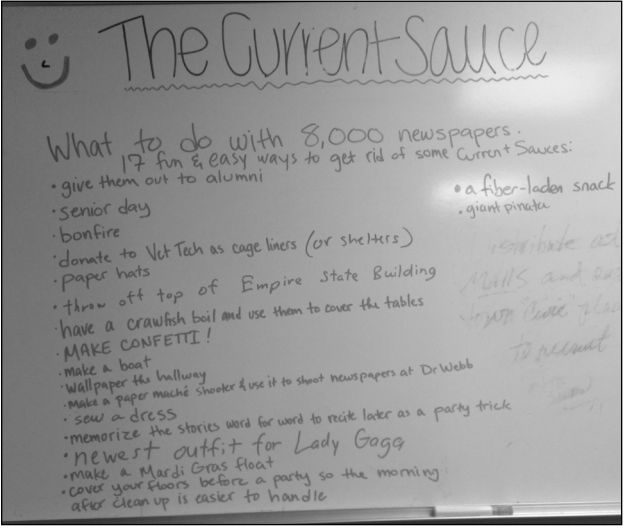 The Current Sauce
What to do with 8,000 newspapers.
17 fun & easy ways to get rid of some Current Sauces:
• give them out to alumni
• senior day
• bonfire
• donate to Vet Tech as cage liners (or shelters)
• paper hats
• throw off top of Empire State Building
• have a crawfish boil and use them to cover the tables
• MAKE CONFETTI!
• make a boat
• wallpaper the hallway
• Make a paper maché shooter & use it to shoot newspapers at Dr Webb
• sew a dress
• memorize the stories word for word to recite later as a party trick
• newest outfit for Lady Gaga
• make a Mardi Gras float
• cover your floors before a party so the morning
after clean up is easier to handle
• a fiber-laden snack
• giant pinata
Malls and
to